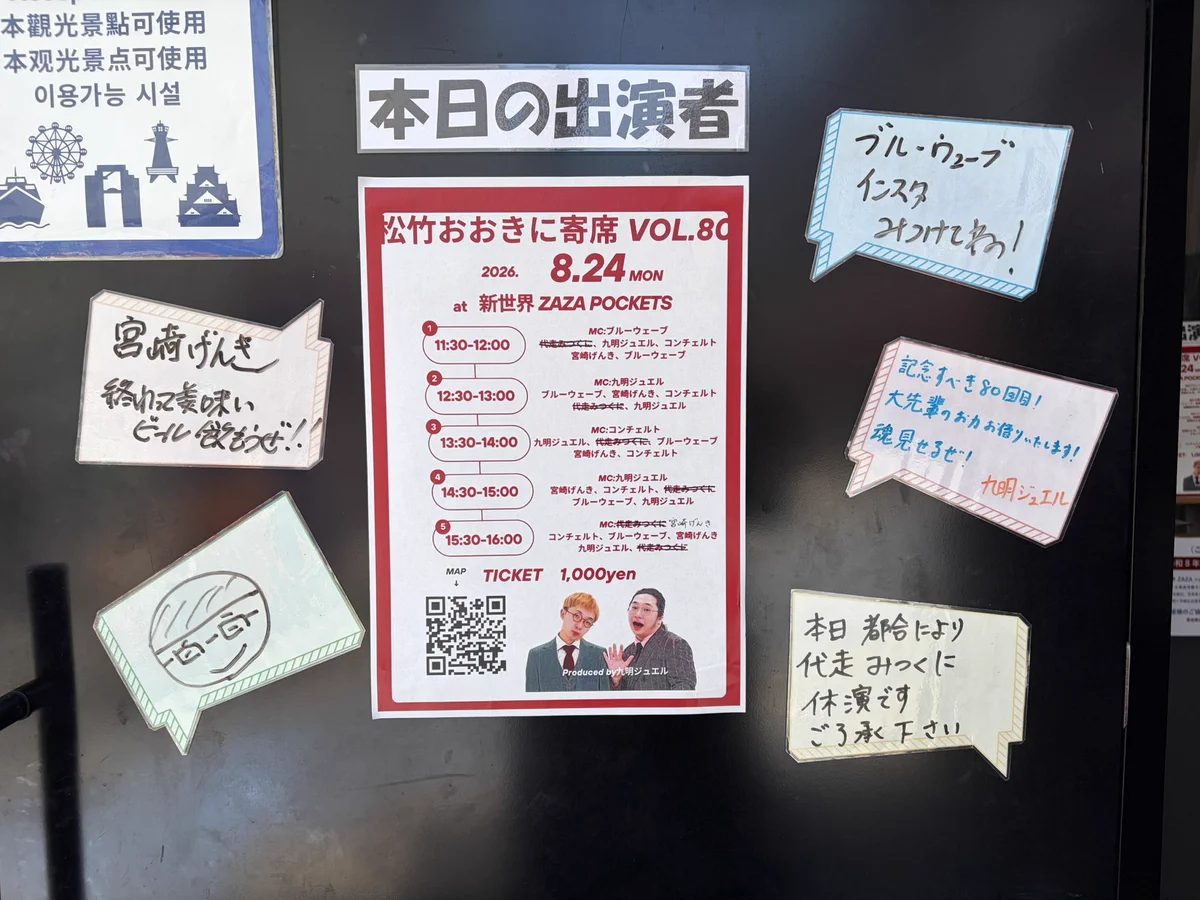 本觀光景點可使用
本观光景点可使用
이용가능 시설
本日の出演者
松竹おおきに寄席 VOL.80
2026. 8.24 MON
at 新世界 ZAZA POCKETS
1
11:30-12:00
MC:ブルーウェーブ
代走みつくに、九明ジュエル、コンチェルト
宮崎げんき、ブルーウェーブ
2
12:30-13:00
MC:九明ジュエル
ブルーウェーブ、宮崎げんき、コンチェルト
代走みつくに、九明ジュエル
3
13:30-14:00
MC:コンチェルト
九明ジュエル、代走みつくに、ブルーウェーブ
宮崎げんき、コンチェルト
4
14:30-15:00
MC:九明ジュエル
宮崎げんき、コンチェルト、代走みつくに
ブルーウェーブ、九明ジュエル
5
15:30-16:00
MC:代走みつくに 宮崎げんき
コンチェルト、ブルーウェーブ、宮崎げんき
九明ジュエル、代走みつくに
MAP
↓
TICKET 1,000yen
Produced by九明ジュエル
宮崎げんき
終わって美味い
ビール飲もうぜ!!
ブル・ウェーブ
インスタ
みつけてねっ!
記念すべき80回目!
大先輩のお力お借りいたします!
魂見せるぜ!
九明ジュエル
本日 都合により
代走 みつくに
休演です
ご了承下さい